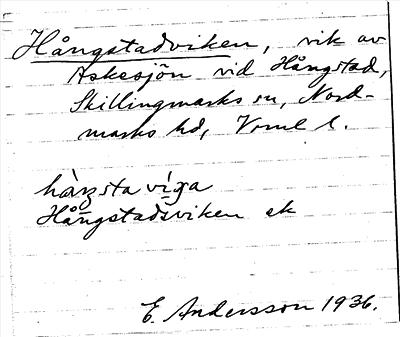 Hångstadviken, vik av
Askesjön vid Hångstad,
Skillingmarks sn, Nord-
marks hd, Vrml l.
hångsta viga
Hångstadsviken ek
E. Andersson 1936.